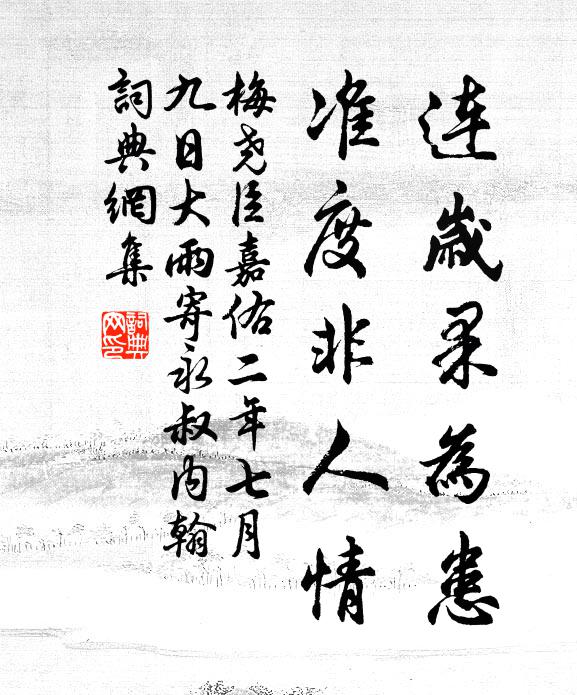 連歲果為患
准度非人情
梅堯臣嘉佑二年七月
九日大雨寄永叔內翰
詞典網集
詞典
网印